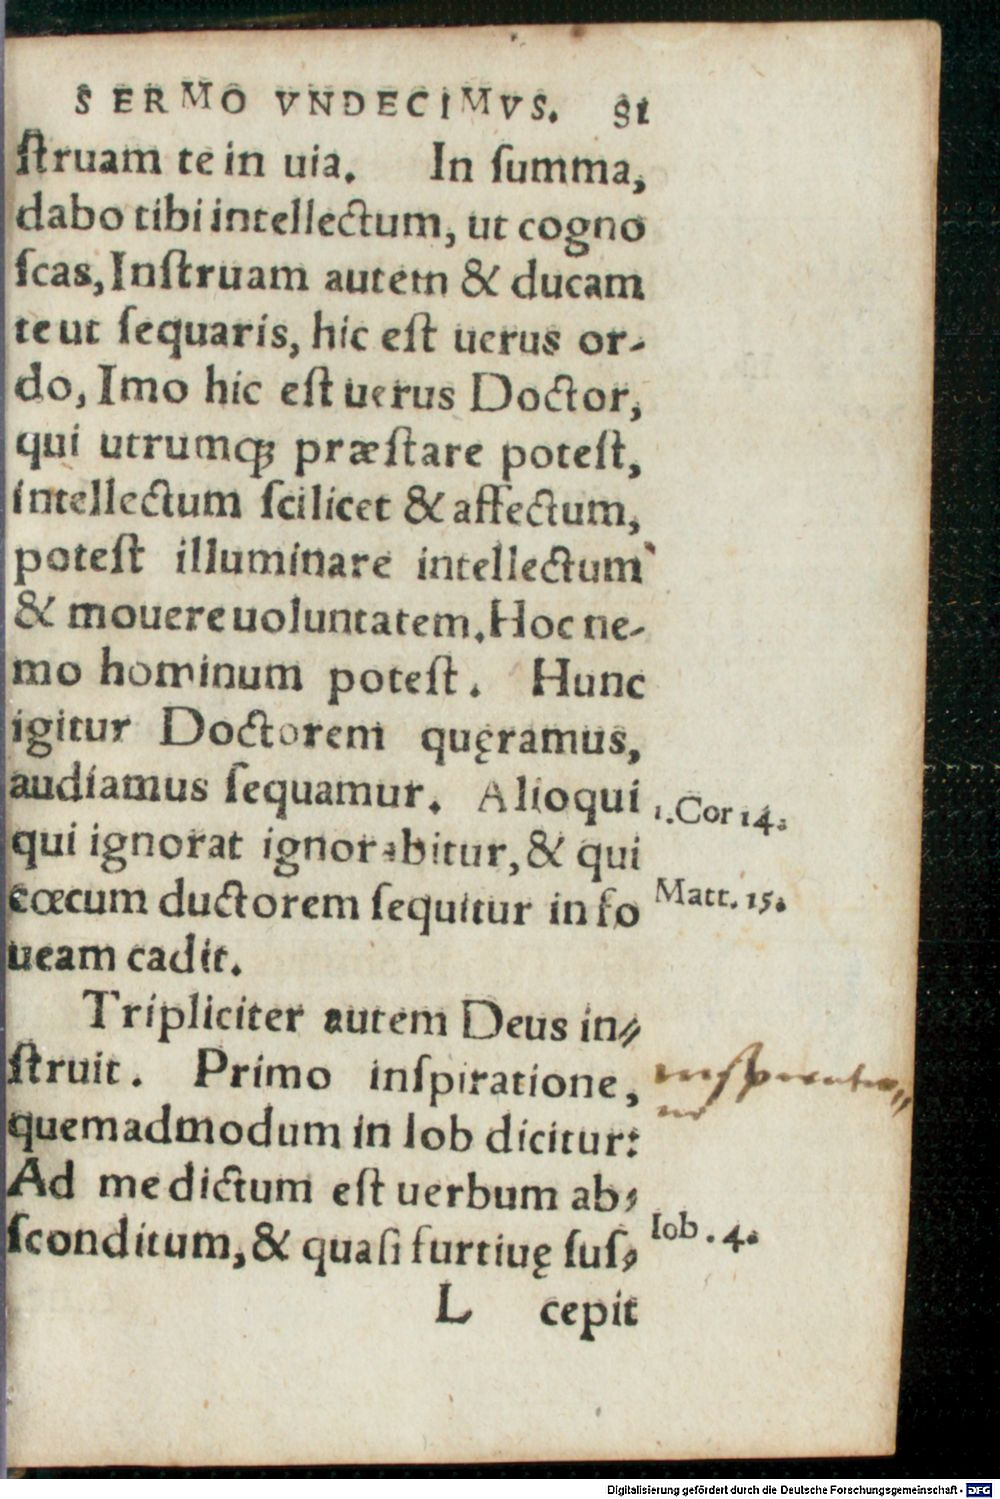 SERMO VNDECIMVS. 81
ſtruam te in uia. In ſumma,
dabo tibi intellectum, ut cogno
ſcas, Inſtruam autem & ducam
te ut ſequaris, hic eſt uerus or-
do, Imo hic eſt uerus Doctor,
qui utrumqꝫ præſtare poteſt,
intellectum ſcilicet & affectum,
poteſt illuminare intellectum
& mouere uoluntatem. Hoc ne-
mo hominum poteſt. Hunc
igitur Doctorem quęramus,
audiamus ſequamur. Alioqui
1. Cor 14.
qui ignorat ignorabitur, & qui
cœcum ductorem ſequitur in fo
Matt. 15.
ueam cadit.
Tripliciter autem Deus in⸗
ſtruit. Primo inſpiratione,
quemadmodum in Iob dicitur:
Ad me dictum eſt uerbum ab⸗
Iob. 4.
ſconditum, & quaſi furtiuę ſuſ⸗
L cepit
Digitalisierung gefördert durch die Deutsche Forschungsgemeinschaft - DFG